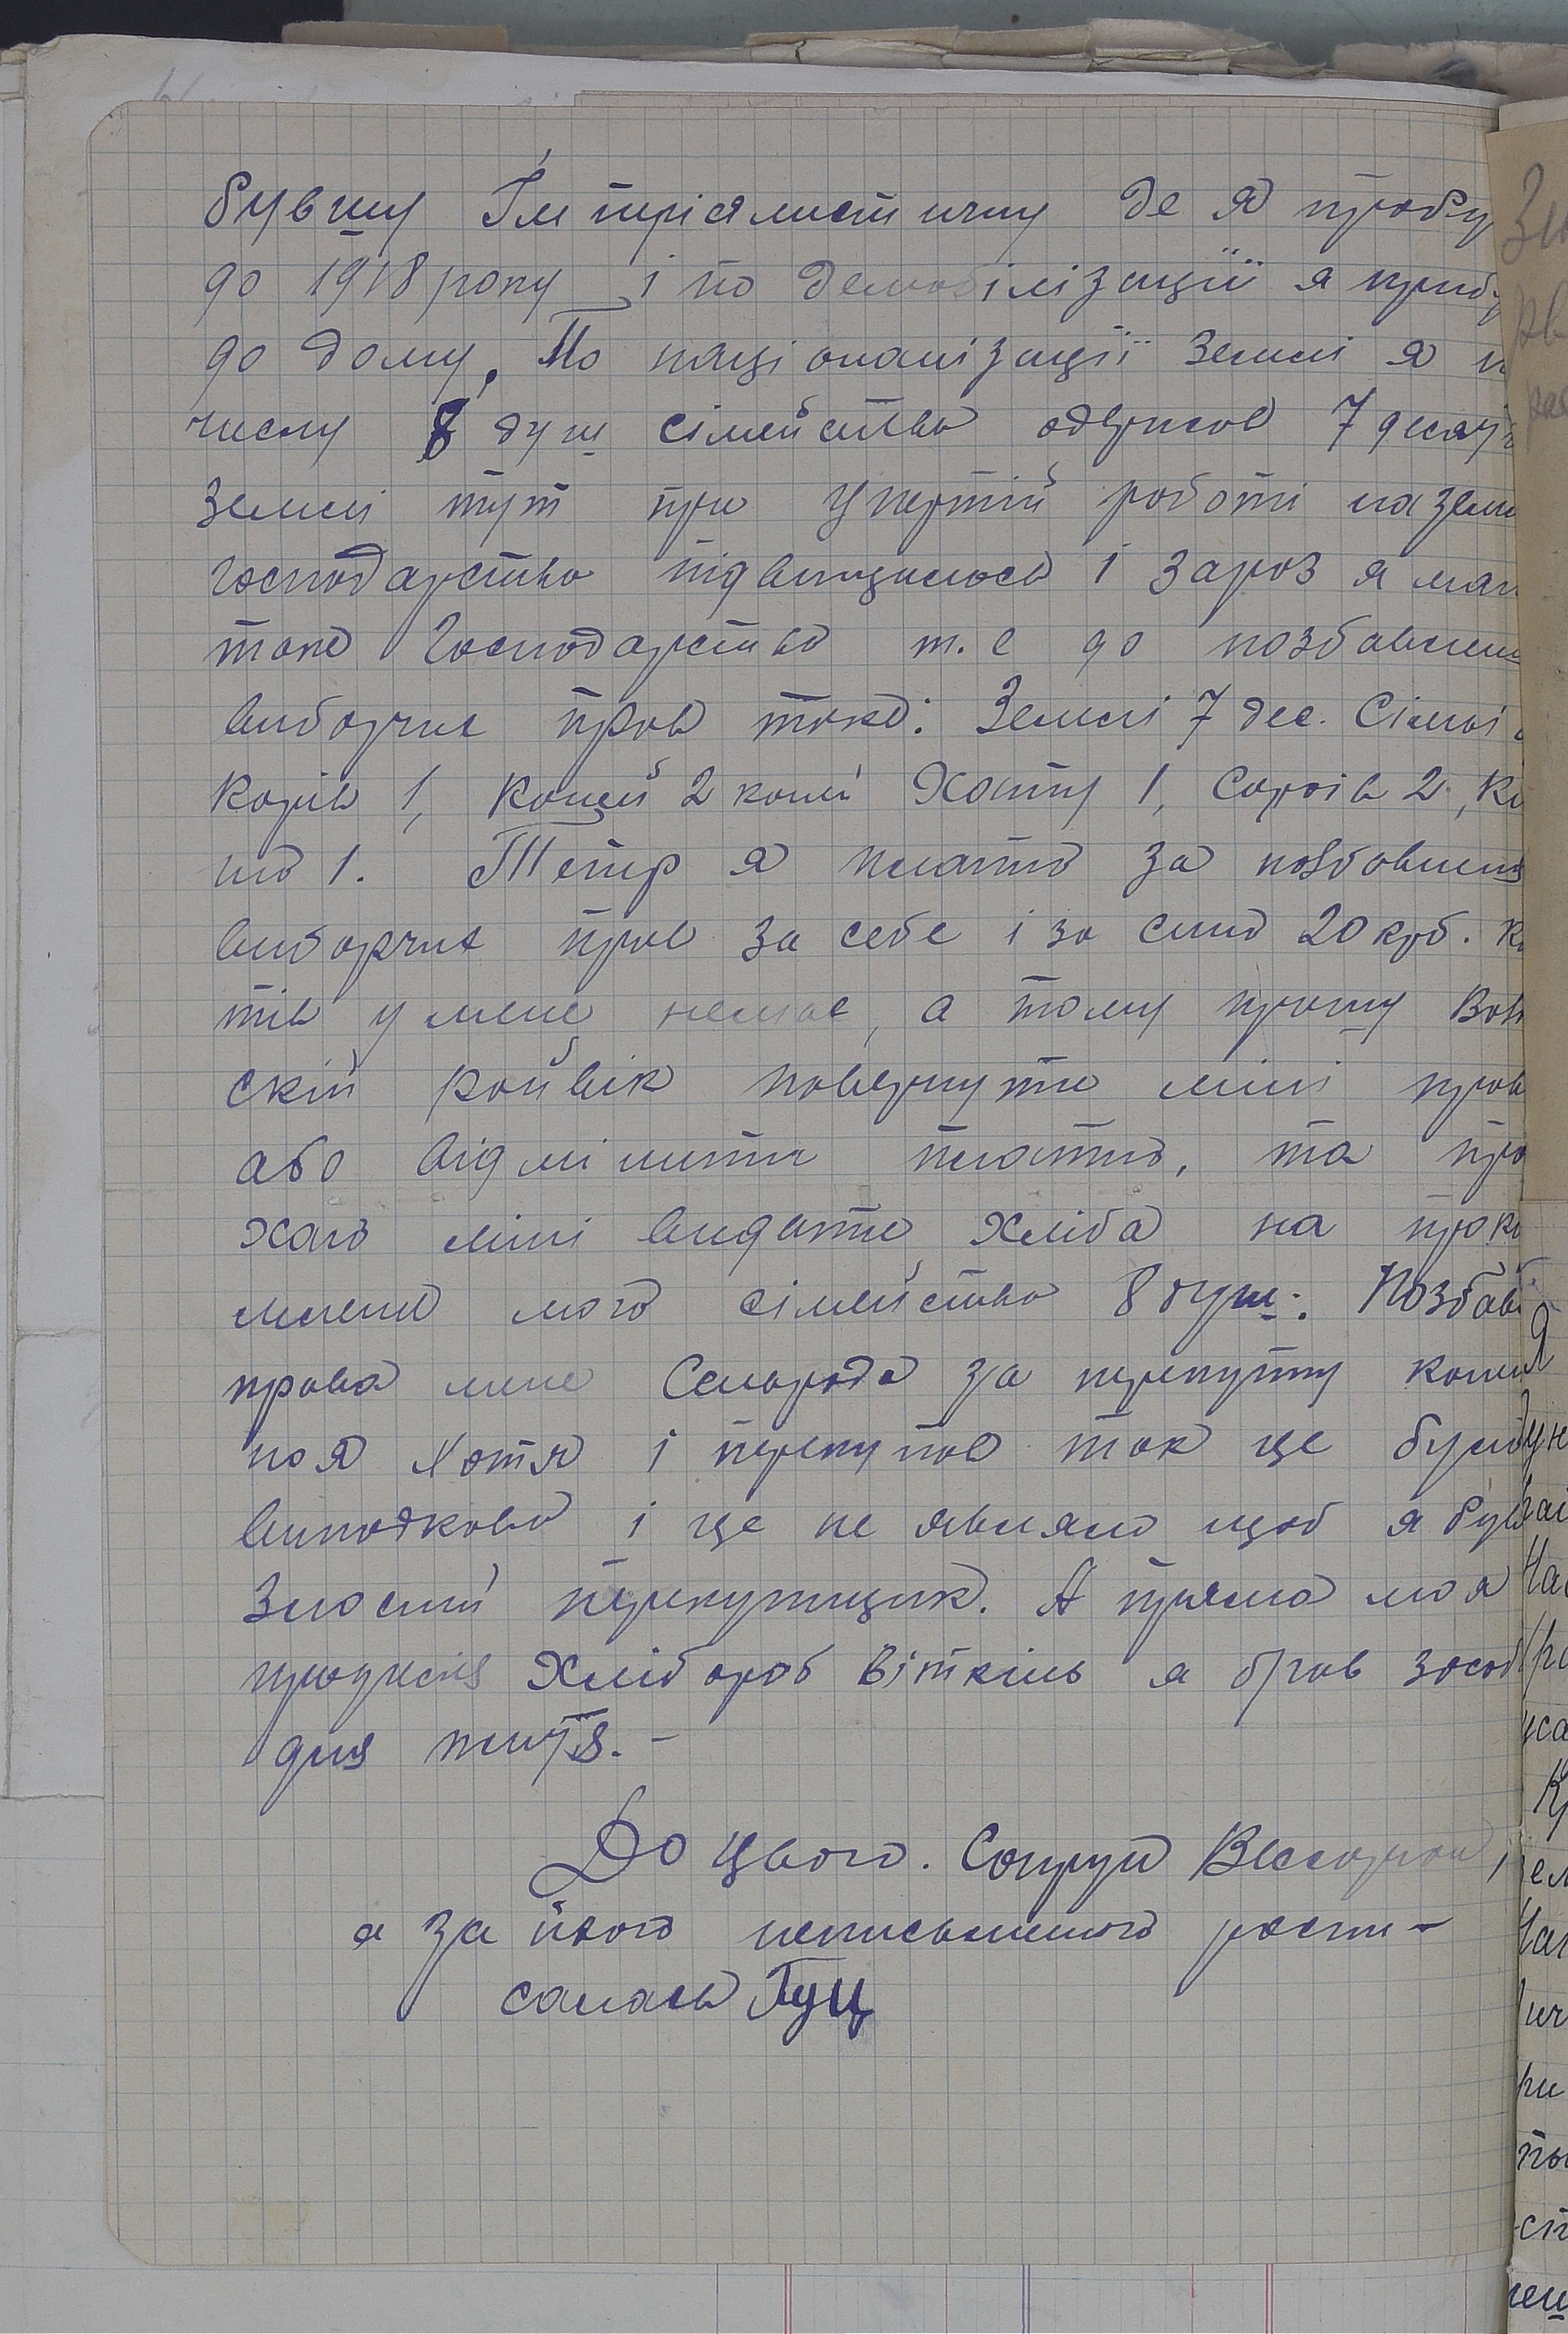 бувшу Імперіялистичну де я пробу
до 1918 року і по демобілізації я прибу
до дому. По націоналізації землі я п
числу 8 душ сімейства одержав 7 десят
землі тут при упертій роботі на земл
господарство підвищилось і зараз я маю
таке господарство т.е до позбавленн
виборчих прав таке: Землі 7 дес. Сімьі
корів 1, коней 2 коні Хату 1, Сараїв 2, Кл
ня 1. Тепер я платю за позбавлення
виборчих прав за себе і за сина 20 крб. К
тів у мене немає, а тому прошу Вов
скій райвік повернути міні прав
або відмінити платню, та про
хаю міні видати хліба на проко
млення мого сімейства 8 душ. Позбав
права мене Сельрада за перекупку коней
но я хотя і перекупав так це було
випадково і це не являло щоб я був
злосний перекупщик. А пряма моя
професія Хлібороб віткіль я брав засоб
для життя.-
До цього. Сопрун
а за його неписьменого роспи-
салась Гуц